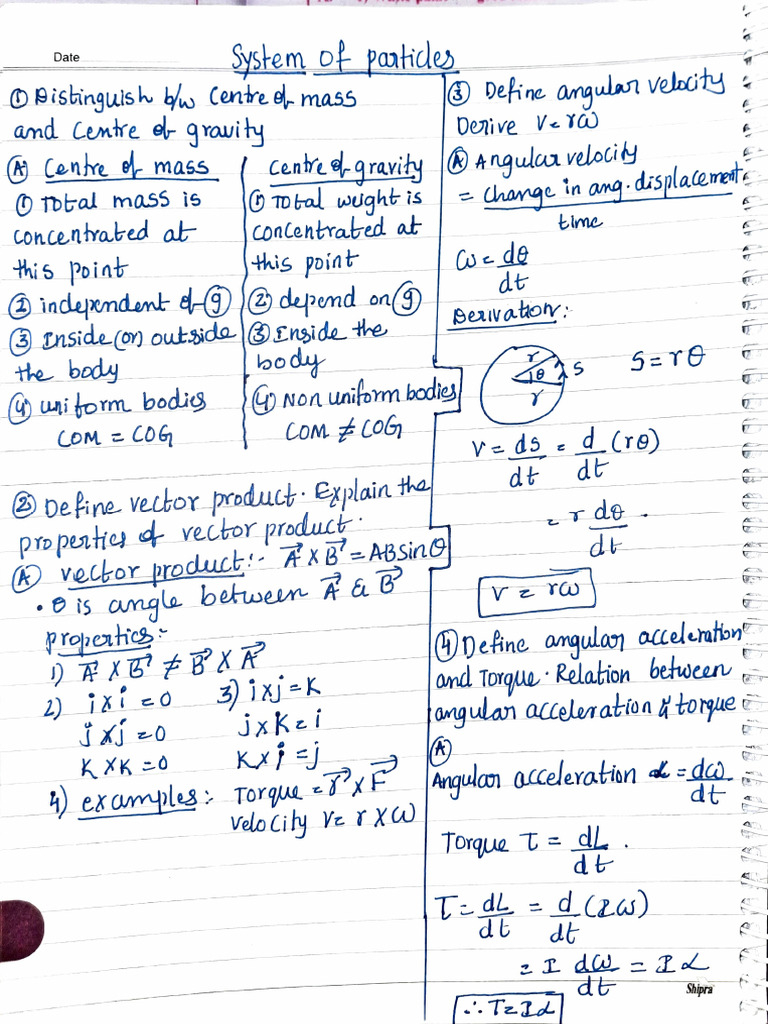 Date
System of particles
① Distinguish b/w Centre of mass
and Centre of gravity
Ⓐ Centre of mass
① Total mass is
concentrated at
this point
② independent of ⓖ
③ Inside (or) outside
the body
④ uniform bodies
COM = COG
Centre of gravity
① Total weight is
concentrated at
this point
② depend on ⓖ
③ Inside the
body
④ Non uniform bodies
COM ≠ COG
② Define vector product. Explain the
properties of vector product.
Ⓐ vector product:- A⃗ × B⃗ = AB sinθ
• θ is angle between A⃗ & B⃗
properties:-
1) A⃗ × B⃗ ≠ B⃗ × A⃗
2) i × i = 0
j × j = 0
K × K = 0
3) i × j = K
j × K = i
K × i = j
4) examples:- Torque = r⃗ × F⃗
velocity v = r × ω
③ Define angular velocity
Derive V = rω
Ⓐ Angular velocity
= change in ang. displacement
time
ω = dθ/dt
Derivation:
r
θ
S
r
S = rθ
V = ds/dt = d/dt (rθ)
= r dθ/dt .
V = rω
④ Define angular acceleration
and Torque. Relation between
angular acceleration & torque
Ⓐ
Angular acceleration α = dω/dt
Torque τ = dL/dt .
τ = dL/dt = d/dt (Iω)
= I dω/dt = I α
∴ τ = Iα
Shipra